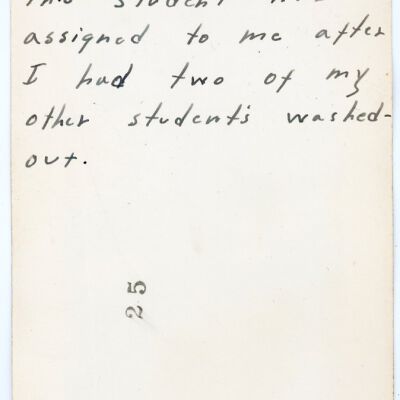 This student was
assigned to me after
I had two of my
other student's washed-
out.
25